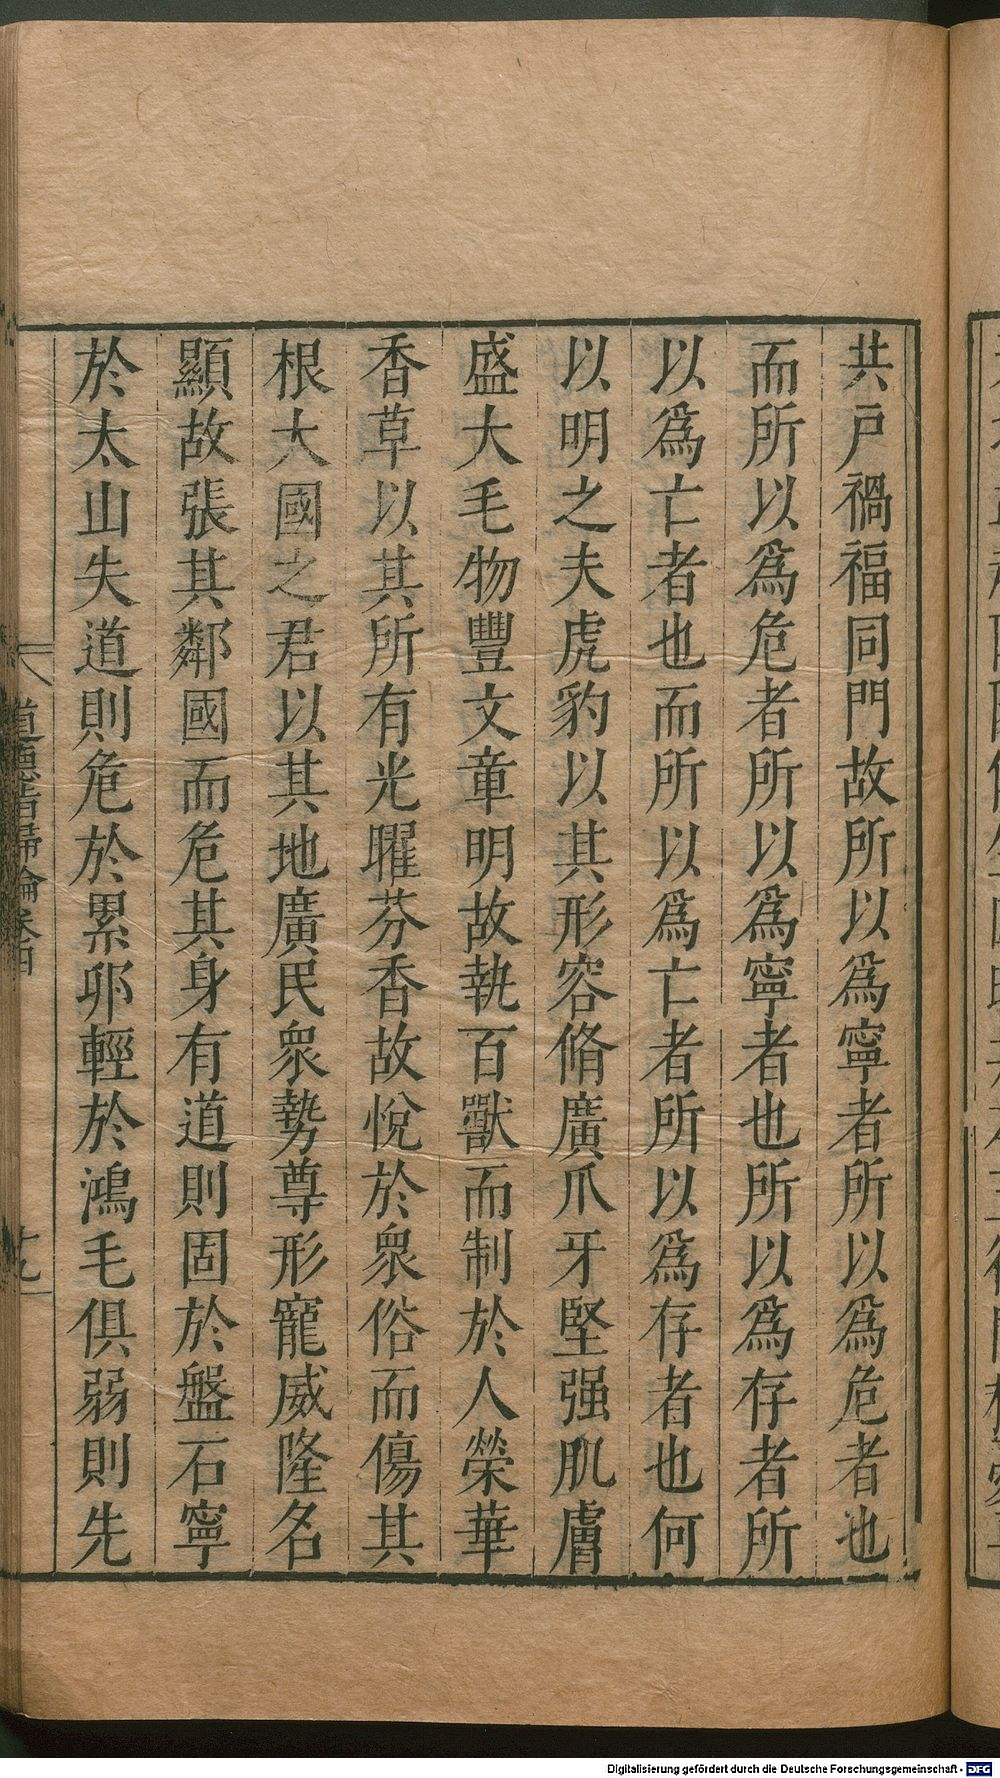 共戸禍福同門故所以爲寧者所以爲危者也
而所以爲危者所以爲寧者也所以爲存者所
以爲亡者也而所以爲亡者所以爲存者也何
以明之夫虎豹以其形容脩廣爪牙堅强肌膚
盛大毛物豐文章明故執百獸而制於人榮華
香草以其所有光曜芬香故悅於衆俗而傷其
根大國之君以其地廣民衆勢尊形寵威隆名
顯故張其鄰國而危其身有道則固於盤石寧
於太山失道則危於累卵輕於鴻毛俱弱則先
道德指歸論卷四
廿九
Digitalisierung gefördert durch die Deutsche Forschungsgemeinschaft - DFG